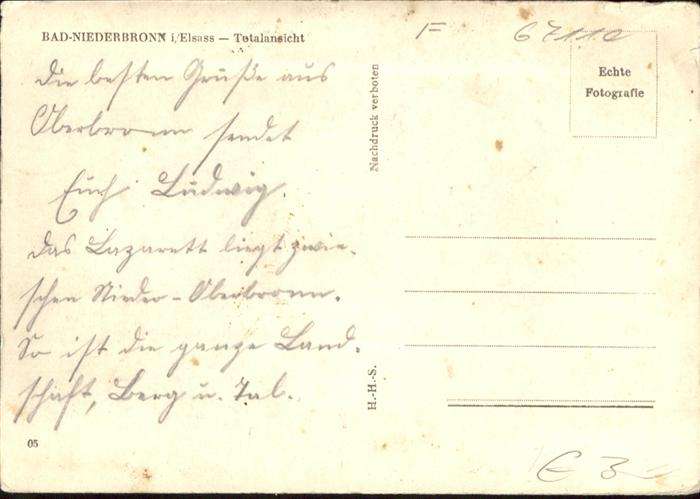 BAD-NIEDERBRONN i/Elsass — Totalansicht
F 67110
Echte
Fotografie
Nachdruck verboten
die besten Grüße aus
Oberbronn sendet
Euch Ludwig.
das Lazarett liegt zwi-
schen Nieder-Oberbronn.
So ist die ganze Land-
schaft, Berg u. Tal.
H.-H-S.
05
€ 3